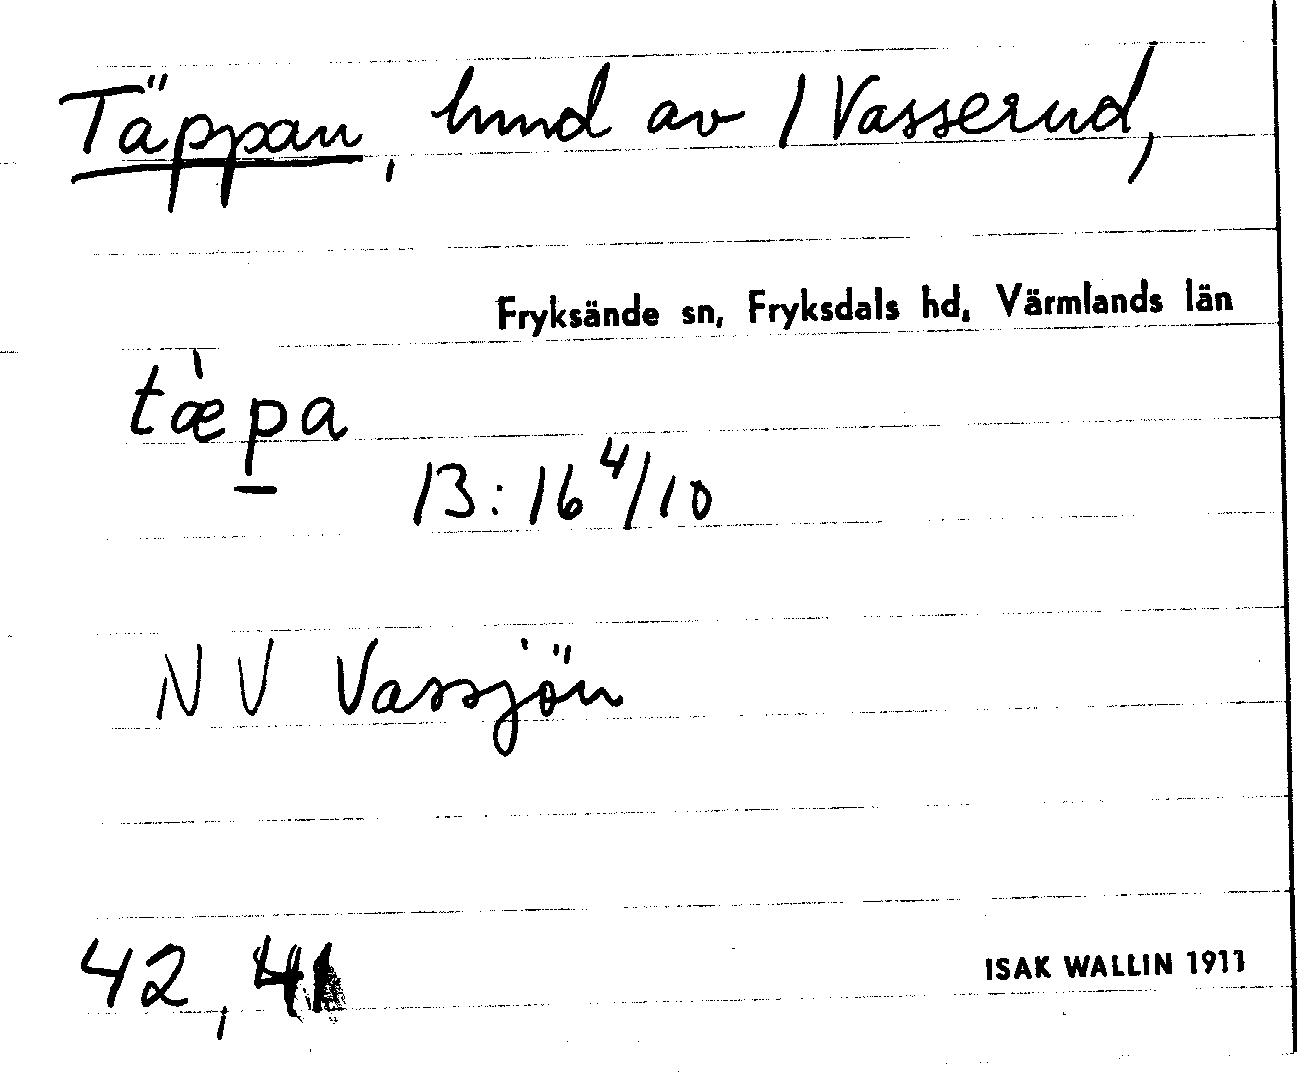 Täppan, hmd av 1 Vasserud,
Fryksände sn, Fryksdals hd, Värmlands län
tæ̀pa
13:16 4/10
N V Vassjön
42, 41
ISAK WALLIN 1911